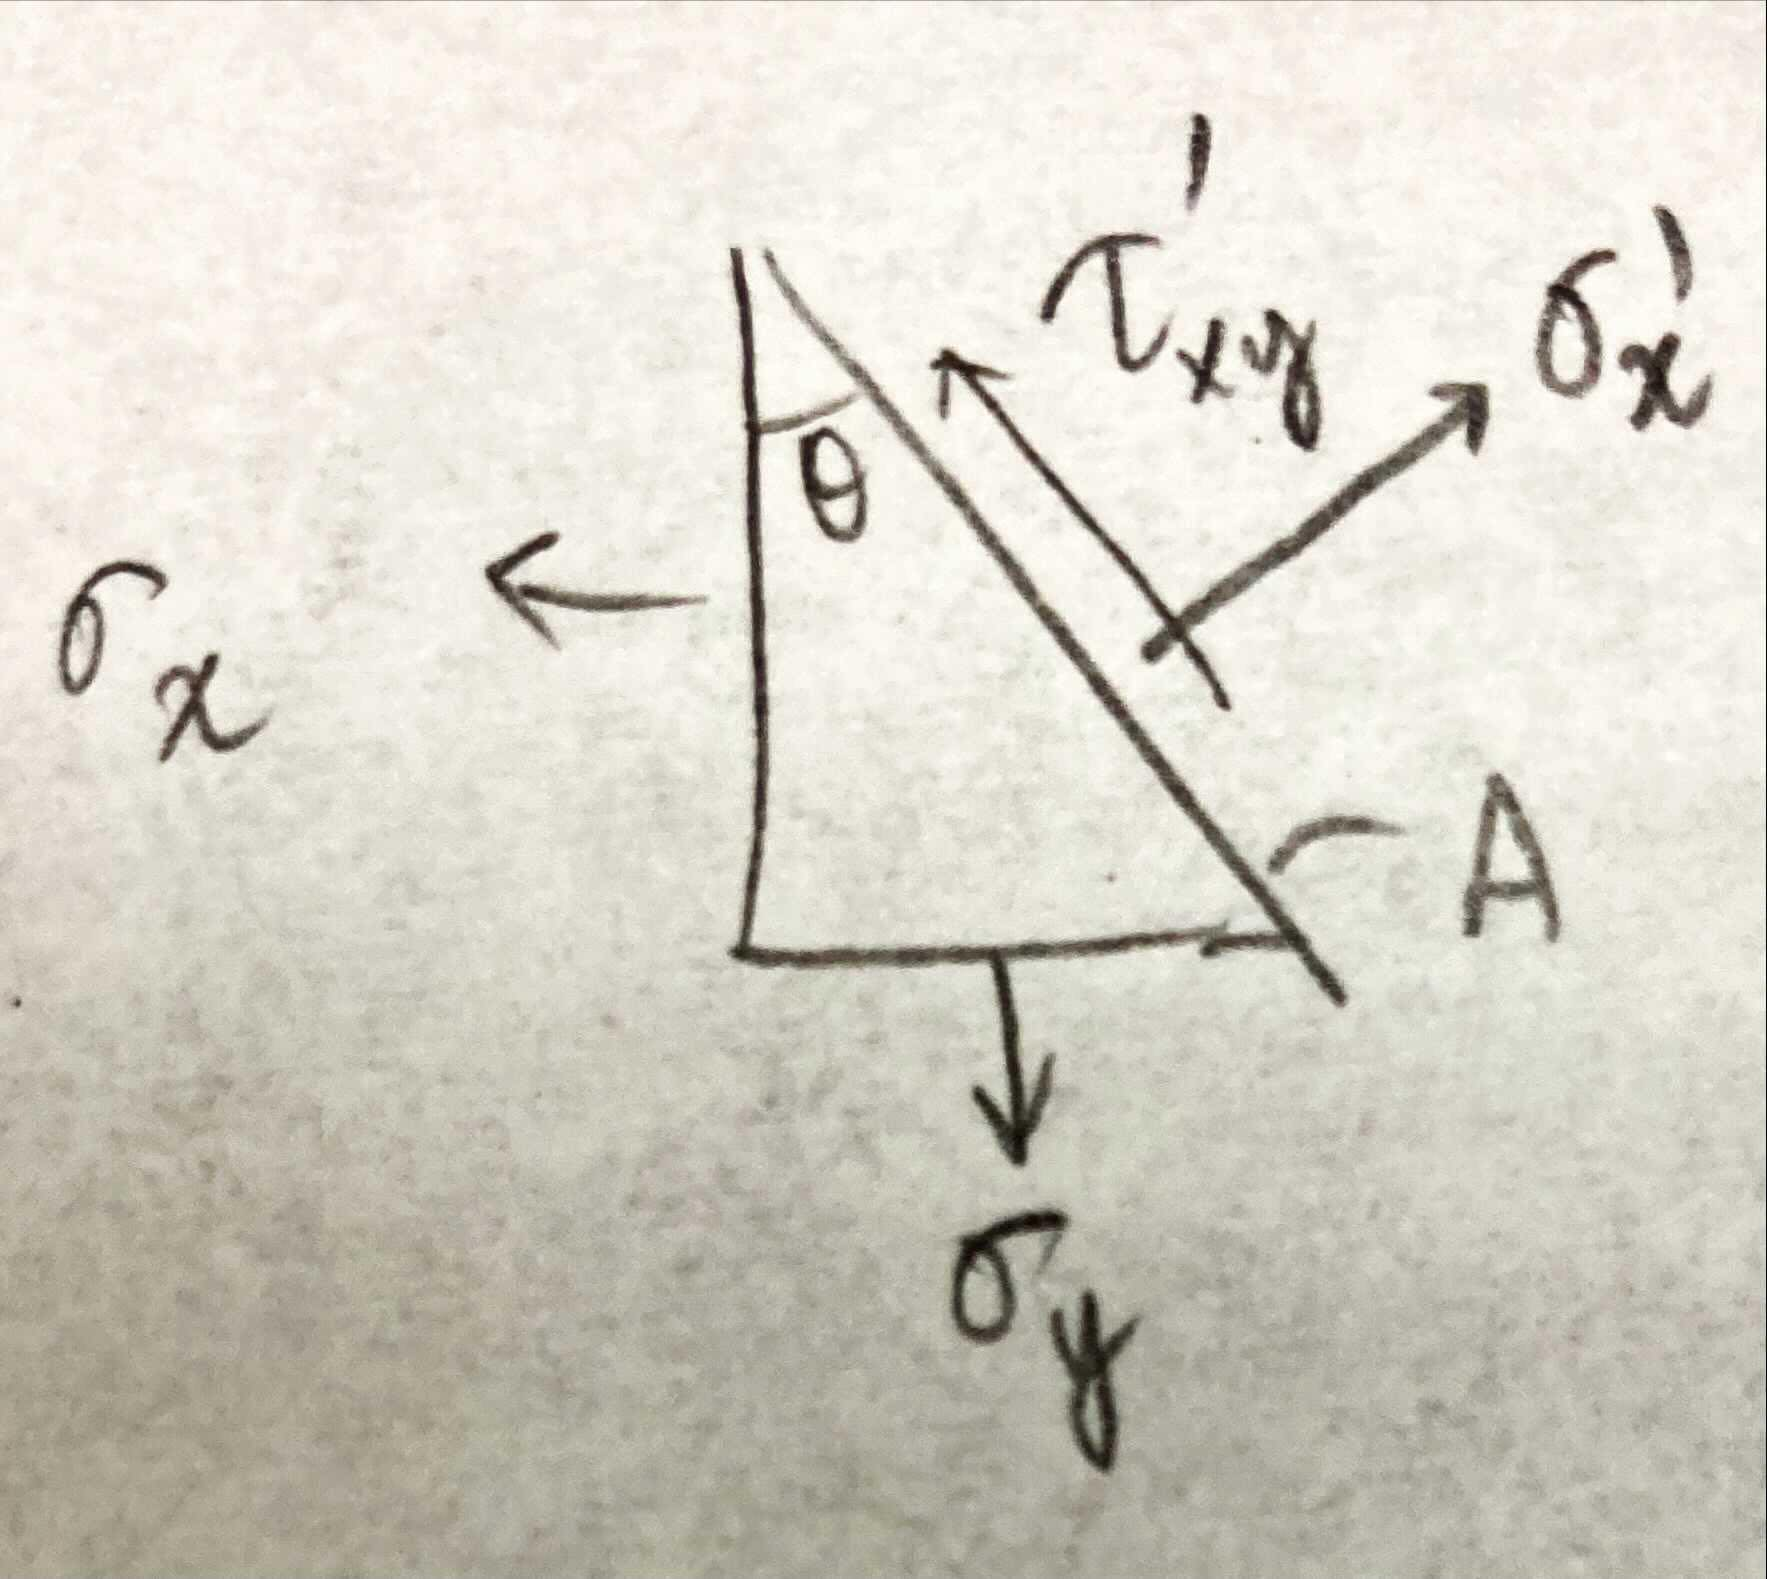 τ'xy
σ'x
θ
σx
A
σy